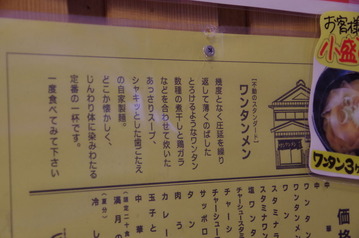 【不動のスタンダード】
ワンタンメン
幾度となく圧延を繰り
返して薄くのばした
とろけるようなワンタン
数種の煮干しと鶏ガラ
などを合わせて炊いた
あっさりスープ、
シャキッとした歯ごたえ
の自家製麺。
どこか懐かしく、
じんわり体に染みわたる
定番の一杯です。
一度食べてみて下さい
お客様
小盛
ワンタン3ヶ
価格
中華
ワンタン
ワンタン
スタミナラ
スタミナワン
塩ワンタン
チャーシュースタミ
チャーシ
チャーシュー
サッポロ
肉う
タン
カレー
玉子と
中華
満月の
冷し